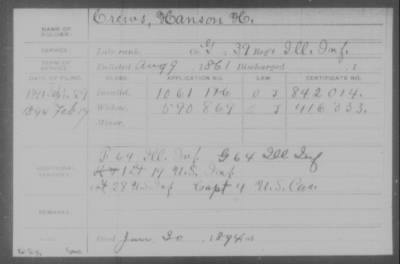 NAME OF SOLDIER: Crews, Hanson H.
SERVICE: Late rank, Co. G, 39 Reg't Ill. Inf.
TERM OF SERVICE: Enlisted Aug 9, 1861 Discharged , 1
DATE OF FILING. CLASS. APPLICATION NO. LAW. CERTIFICATE NO.
Invalid, 1061 176 842 014.
1894 Feb Widow, 590 869 416 833.
Minor,
ADDITIONAL SERVICES: F 64 Ill. Inf G 64 Ill Inf
1st 17 U.S. Inf
28 U.S. Inf Capt 4 U.S. Cav.
REMARKS:
Died Jan 20, 1894, at